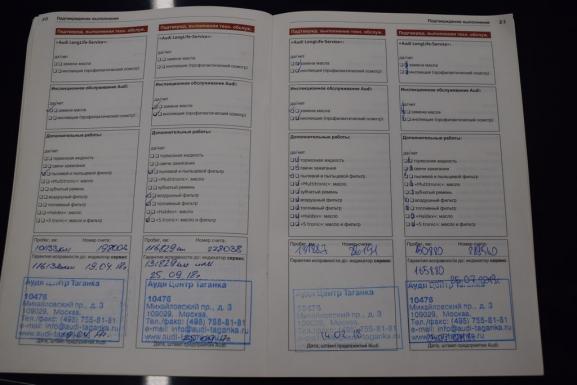 20 Подтверждение выполнения
Подтвержд. выполнения техн. обслуж.
«Audi LongLife-Service»:
да/нет
замена масла
инспекция (профилактический осмотр)
Инспекционное обслуживание Audi:
да/нет
замена масла
инспекция (профилактический осмотр)
Дополнительные работы:
да/нет
тормозная жидкость
свечи зажигания
пылевой и пыльцевой фильтр
«Multitronic»: масло
зубчатый ремень
воздушный фильтр
топливный фильтр
«Haldex»: масло
«S tronic»: масло и фильтр
Пробег, км: Номер счета:
Гарантия исправности до: индикатор сервис
19.04.18г.
Ауди Центр Таганка
10476
Михайловский пр., д. 3
109029, Москва,
Тел./факс: (495) 755-81-81
e-mail: info@audi-taganka.ru
Дата, штамп предприятия Audi:
Подтвержд. выполнения техн. обслуж.
«Audi LongLife-Service»:
да/нет
замена масла
инспекция (профилактический осмотр)
Инспекционное обслуживание Audi:
да/нет
замена масла
инспекция (профилактический осмотр)
Дополнительные работы:
да/нет
тормозная жидкость
свечи зажигания
пылевой и пыльцевой фильтр
«Multitronic»: масло
зубчатый ремень
воздушный фильтр
топливный фильтр
«Haldex»: масло
«S tronic»: масло и фильтр
Пробег, км: Номер счета:
228038
Гарантия исправности до: индикатор сервис
25.09.18г.
Ауди Центр Таганка
10476
Михайловский пр., д. 3
109029, Москва,
Тел./факс: (495) 755-81-81
e-mail: info@audi-taganka.ru
Дата, штамп предприятия Audi:
Подтверждение выполнения 21
Подтвержд. выполнения техн. обслуж.
«Audi LongLife-Service»:
да/нет
замена масла
инспекция (профилактический осмотр)
Инспекционное обслуживание Audi:
да/нет
замена масла
инспекция (профилактический осмотр)
Дополнительные работы:
да/нет
тормозная жидкость
свечи зажигания
пылевой и пыльцевой фильтр
«Multitronic»: масло
зубчатый ремень
воздушный фильтр
топливный фильтр
«Haldex»: масло
«S tronic»: масло и фильтр
Пробег, км: Номер счета:
Гарантия исправности до: индикатор сервис
Ауди Центр Таганка
10476
Михайловский пр., д. 3
109029, Москва,
Тел./факс: (495) 755-81-81
e-mail: info@audi-taganka.ru
Дата, штамп предприятия Audi:
Подтвержд. выполнения техн. обслуж.
«Audi LongLife-Service»:
да/нет
замена масла
инспекция (профилактический осмотр)
Инспекционное обслуживание Audi:
да/нет
замена масла
инспекция (профилактический осмотр)
Дополнительные работы:
да/нет
тормозная жидкость
свечи зажигания
пылевой и пыльцевой фильтр
«Multitronic»: масло
зубчатый ремень
воздушный фильтр
топливный фильтр
«Haldex»: масло
«S tronic»: масло и фильтр
Пробег, км: Номер счета:
Гарантия исправности до: индикатор сервис
165880
Ауди Центр Таганка
10476
Михайловский пр., д. 3
109029, Москва,
Тел./факс: (495) 755-81-81
e-mail: info@audi-taganka.ru
Дата, штамп предприятия Audi: